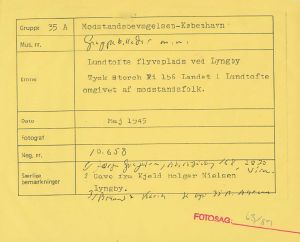 Gruppe 35 A Modstandsbevægelsen-København
Mus. nr. Gruppebilleder m.m.
Lundtofte flyveplads ved Lyngby
Emne Tysk Storch Fi 156 Landet i Lundtofte
omgivet af modstandsfolk.
Dato Maj 1945
Fotograf
Neg. nr. 10.658
Særlige
bemærkninger 2 Gave fra Kjeld Holger Nielsen
Lyngby.
FOTOSAG: